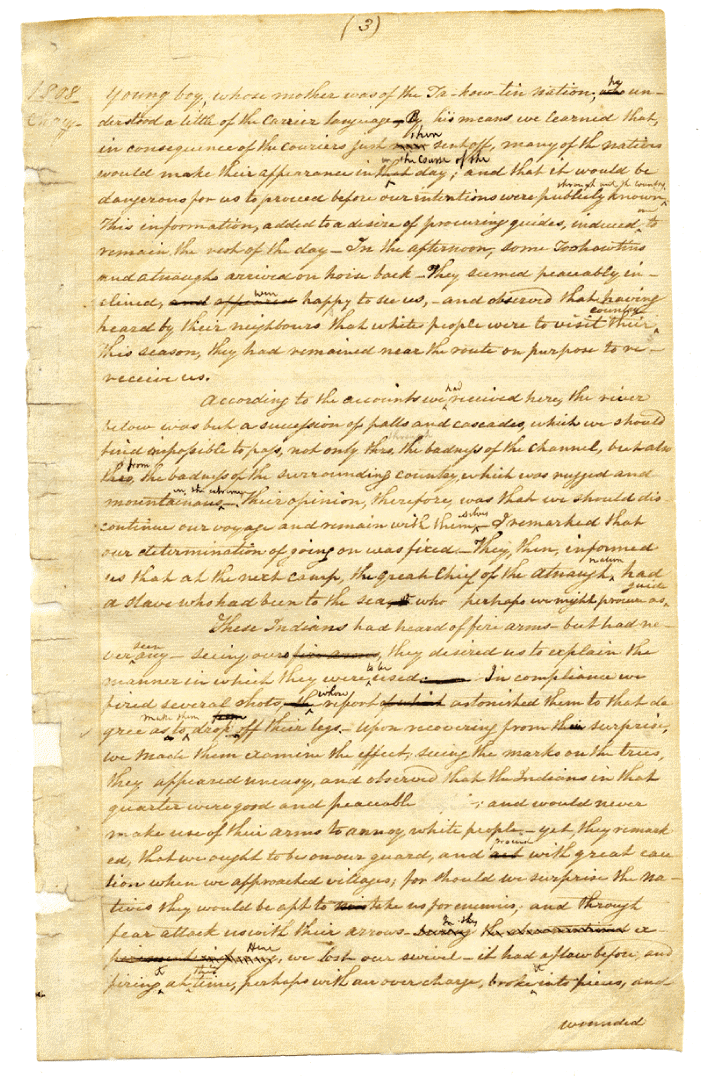 (3)
1808
young boy, whose mother was of the Ta-kow-tin nation, who he un-
derstood a little of the Carrier language - By his means we learned that,
in consequence of the Couriers just now then sent off, many of the natives
would make their appearance in that in the course of the day; and that it would be
dangerous for us to proceed before our intentions were publicly known through out the country
This information, added to a desire of procuring guides, induced me to
remain the rest of the day - In the afternoon, some Tookowtins
and atnaughs arrived on horse back - They seemed peaceably in-
clined, and appeared were happy to see us, - and observed that having
heard by their neighbours that white people were to visit their country
this season, they had remained near the route on purpose to re-
receive us.
According to the accounts we had received here, the river
below was but a succession of falls and cascades, which we should
find impossible to pass, not only thro, the badness of the channel, but also
thro, from the badness of the surrounding country, which was rugged and
mountainous in the extreme - Their opinion, therefore, was that we should dis
continue our voyage and remain with them selves - I remarked that
our determination of going on was fixed - They, then, informed
us that at the next camp, the great Chief of the atnaugh nation had
a slave who had been to the sea, & who perhaps we might procure as guide
These Indians had heard of fire arms - but had ne
ver seen any - seeing ours fire arms, they desired us to explain the
manner in which they were to be used. In compliance we
fired several shots, whose report of which astonished them to that de
gree as to make them drop off their legs, - upon recovering from their surprise,
we made them examine the effect, seeing the marks on the trees,
they appeared uneasy, and observed that the Indians in that
quarter were good and peaceable ; and would never
make use of their arms to annoy white people - yet, they remark
ed, that we ought to be on our guard, and act proceed with great cau
tion when we approached villages; for should we surprise the na-
tives they would be apt to take us for enemies, and through
fear attack us with their arrows - the
Here, we lost our swivel - it had a flaw before, and
firing it at this time, perhaps with an over charge, broke it into pieces, and
wounded